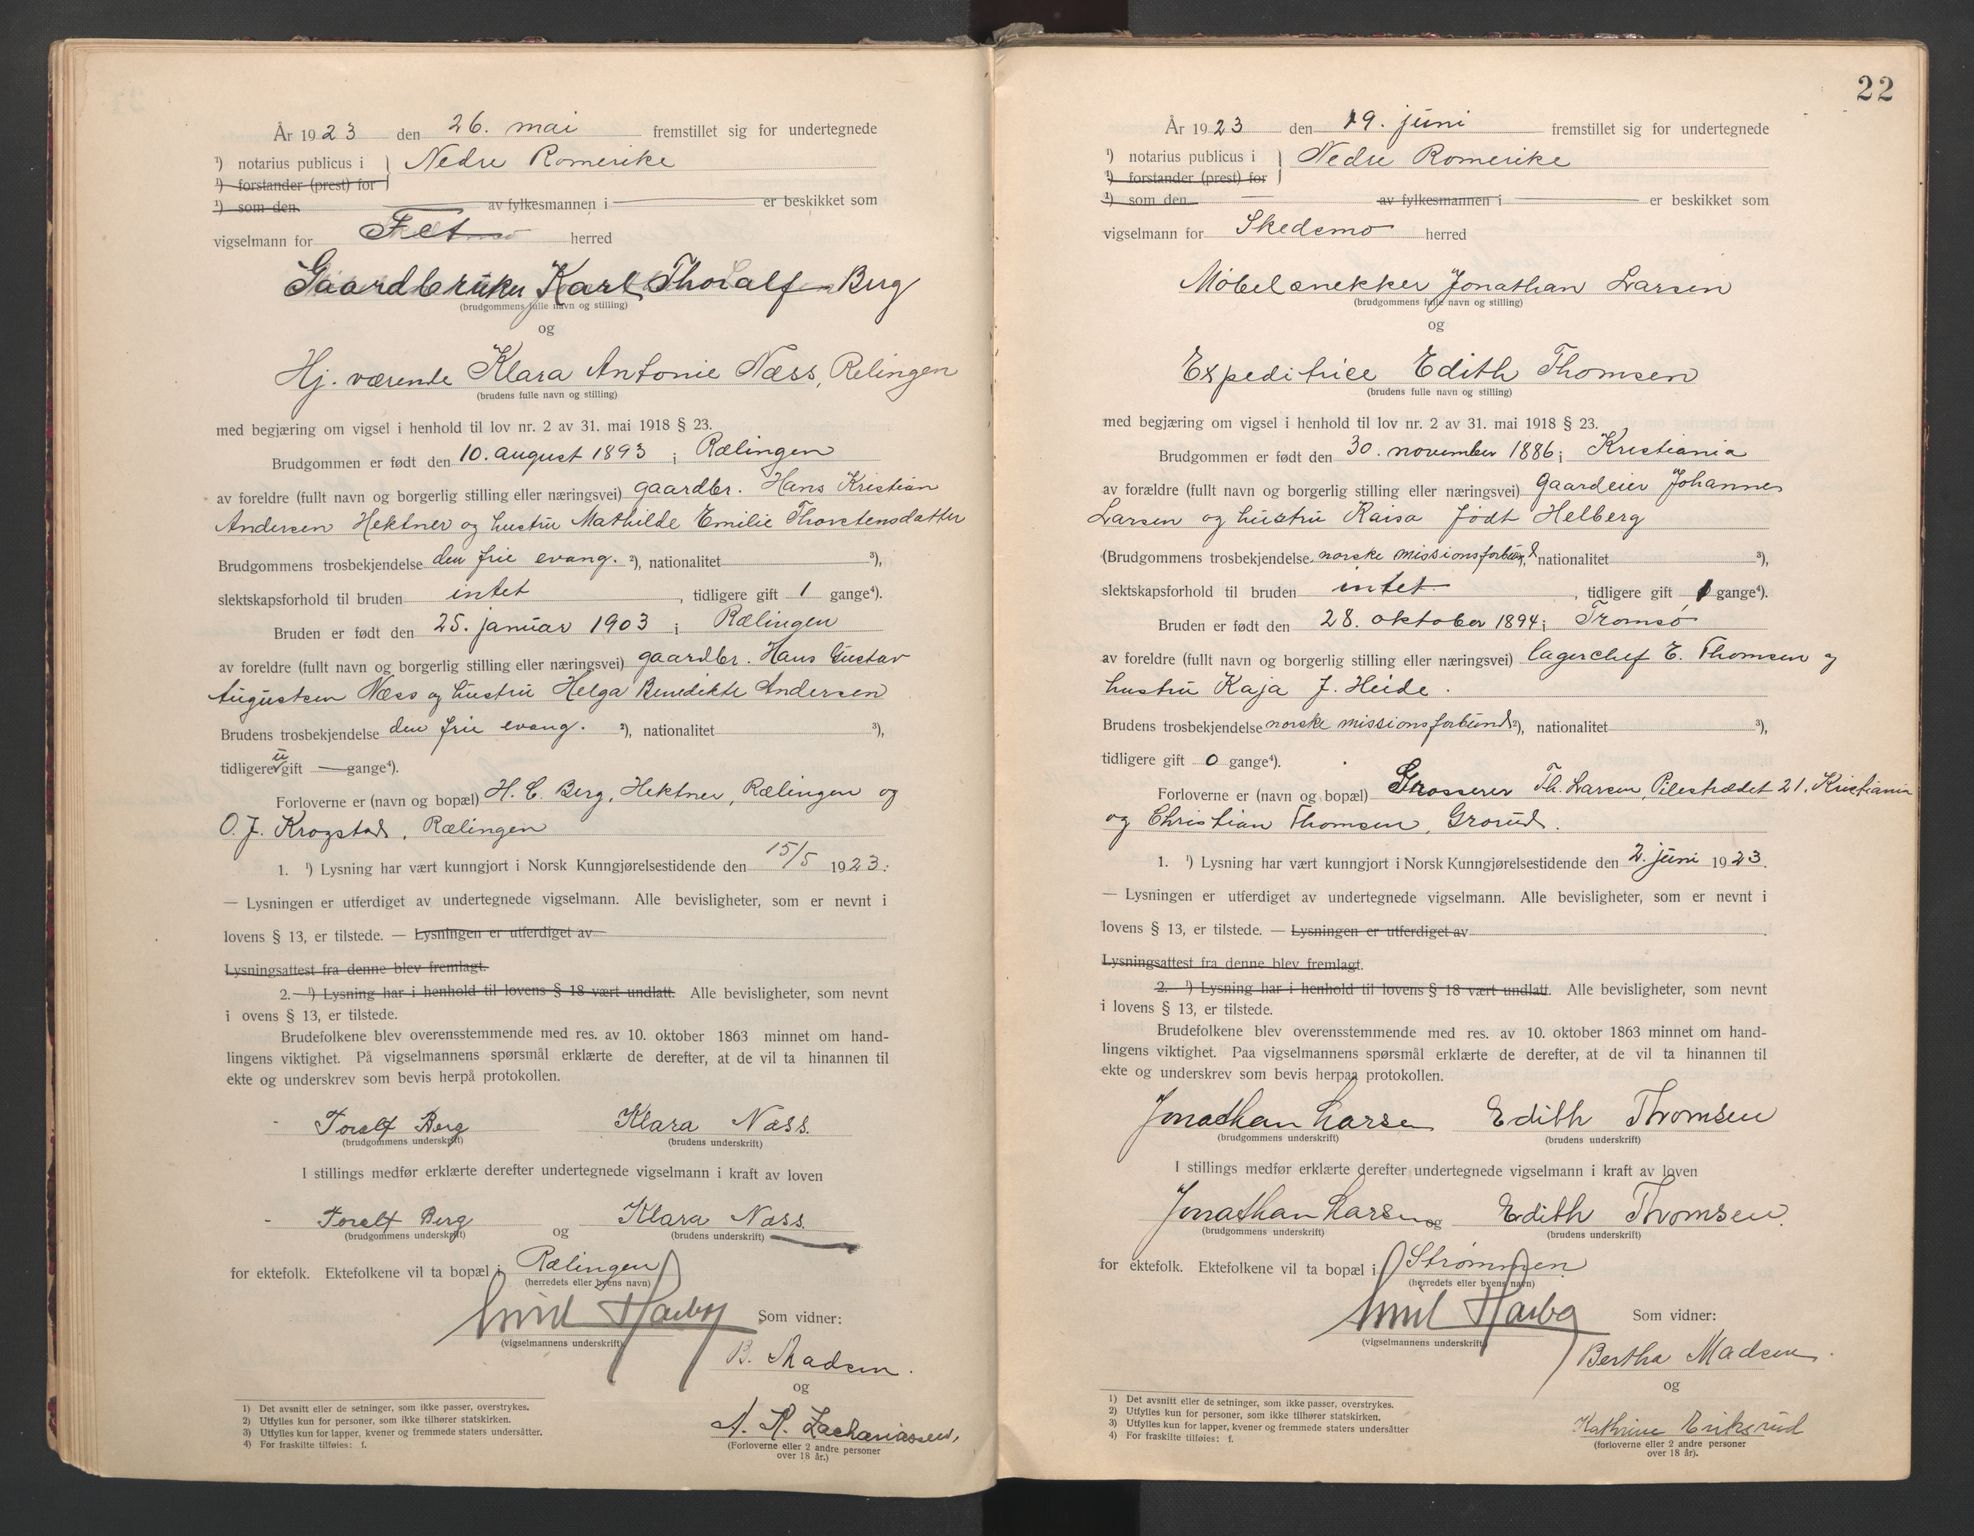 År 1923 den 26. mai fremstillet sig for undertegnede
¹) notarius publicus i } Nedre Romerike
¹) forstander (prest) for
¹) som den av fylkesmannen i er beskikket som
vigselmann for Fet herred
Gaardbruker Karl Thoralf Berg
(brudgommens fulle navn og stilling)
og
Hj. værende Klara Antonie Næss, Relingen
(brudens fulle navn og stilling)
med begjæring om vigsel i henhold til lov nr. 2 av 31. mai 1918 § 23.
Brudgommen er født den 10. august 1893 i Rælingen
av foreldre (fullt navn og borgerlig stilling eller næringsvei) gaardbr. Hans Kristian
Andersen Hektner og hustru Mathilde Emilie Thorstensdatter
Brudgommens trosbekjendelse den frie evang. ²), nationalitet ³),
slektskapsforhold til bruden intet, tidligere gift 1 gange⁴).
Bruden er født den 25. januar 1903 i Rælingen
av foreldre (fullt navn og borgerlig stilling eller næringsvei) gaardbr. Hans Gustav
Augustsen Næss og hustru Helga Benedikte Andersen
Brudens trosbekjendelse den frie evang. ²), nationalitet ³),
tidligere u gift — gange⁴).
Forloverne er (navn og bopæl) H. C. Berg, Hektner, Rælingen og
O. J. Krogstad, Rælingen
1. ¹) Lysning har vært kunngjort i Norsk Kunngjørelsestidende den 15/5 1923.
— Lysningen er utferdiget av undertegnede vigselmann. Alle bevisligheter, som er nevnt i
lovens § 13, er tilstede. — Lysningen er utferdiget av
Lysningsattest fra denne blev fremlagt.
2. — ¹) Lysning har i henhold til lovens § 18 vært undlatt. Alle bevisligheter, som nevnt
i ovens § 13, er tilstede.
Brudefolkene blev overensstemmende med res. av 10. oktober 1863 minnet om hand-
lingens viktighet. På vigselmannens spørsmål erklærte de derefter, at de vil ta hinannen til
ekte og underskrev som bevis herpå protokollen.
Toralf Berg Klara Næss.
(brudgommens underskrift) (brudens underskrift)
I stillings medfør erklærte derefter undertegnede vigselmann i kraft av loven
Toralf Berg og Klara Næss.
(brudgommens underskrift) (brudens underskrift)
for ektefolk. Ektefolkene vil ta bopæl i Rælingen
(herredets eller byens navn)
Emil Harbo Som vidner:
(vigselmannens underskrift)
B. Madsen.
og
A. R. Zachariassen,
(Forloverne eller 2 andre personer
over 18 år.)
1) Det avsnitt eller de setninger, som ikke passer, overstrykes.
2) Utfylles kun for personer, som ikke tilhører statskirken.
3) Utfylles kun for lapper, kvener og fremmede staters undersåtter.
4) For fraskilte tilføies: f.
22
År 1923 den 19. juni fremstillet sig for undertegnede
¹) notarius publicus i } Nedre Romerike
¹) forstander (prest) for
¹) som den av fylkesmannen i er beskikket som
vigselmann for Skedsmo herred
Møbelsnekker Jonathan Larsen
(brudgommens fulle navn og stilling)
og
Expeditrice Edith Thomsen
(brudens fulle navn og stilling)
med begjæring om vigsel i henhold til lov nr. 2 av 31. mai 1918 § 23.
Brudgommen er født den 30. november 1886 i Kristiania
av forældre (fullt navn og borgerlig stilling eller næringsvei) Gaardeier Johannes
Larsen og hustru Kaisa født Helberg
(Brudgommens trosbekjendelse norske missionsforbund ²), nationalitet ³),
slektskapsforhold til bruden intet, tidligere gift 1 gange⁴).
Bruden er født den 28. oktober 1894 i Tromsø
av foreldre (fullt navn og borgerlig stilling eller næringsvei) lagerchef E. Thomsen og
hustru Kaja J. Heide.
Brudens trosbekjendelse norske missionsforbund ²), nationalitet ³),
tidligere gift 0 gange⁴).
Forloverne er (navn og bopæl) Grosserer Th. Larsen, Pilestrædet 21. Kristiania
og Christian Thomsen, Grorud.
1. ¹) Lysning har vært kunngjort i Norsk Kunngjørelsestidende den 2. juni 1923.
— Lysningen er utferdiget av undertegnede vigselmann. Alle bevisligheter, som er nevnt i
lovens § 13, er tilstede. — Lysningen er utferdiget av
Lysningsattest fra denne blev fremlagt.
2. ¹) Lysning har i henhold til lovens § 18 vært undlatt. Alle bevisligheter, som nevnt
i lovens § 13, er tilstede.
Brudefolkene blev overensstemmende med res. av 10. oktober 1863 minnet om hand-
lingens viktighet. Paa vigselmannens spørsmål erklærte de derefter, at de vil ta hinannen til
ekte og underskrev som bevis herpaa protokollen.
Jonathan Larsen Edith Thomsen
(brudgommens underskrift) (brudens underskrift)
I stillings medfør erklærte derefter undertegnede vigselmann i kraft av loven
Jonathan Larsen og Edith Thomsen.
(brudgommens underskrift) (brudens underskrift)
for ektefolk. Ektefolkene vil ta bopæl i Strømmen
(herredets eller byens navn)
Emil Harbo Som vidner:
(vigselmannens underskrift)
Bertha Madsen.
og
Kathrine Eriksrud
(forloverne eller 2 andre personer
over 18 år).
1) Det avsnitt eller de setninger, som ikke passer, overstrykes.
2) Utfylles kun for personer, som ikke tilhører statskirken.
3) Utfylles kun for lapper, kvener og fremmede staters undersåtter
4) For fraskilte tilføies: f.